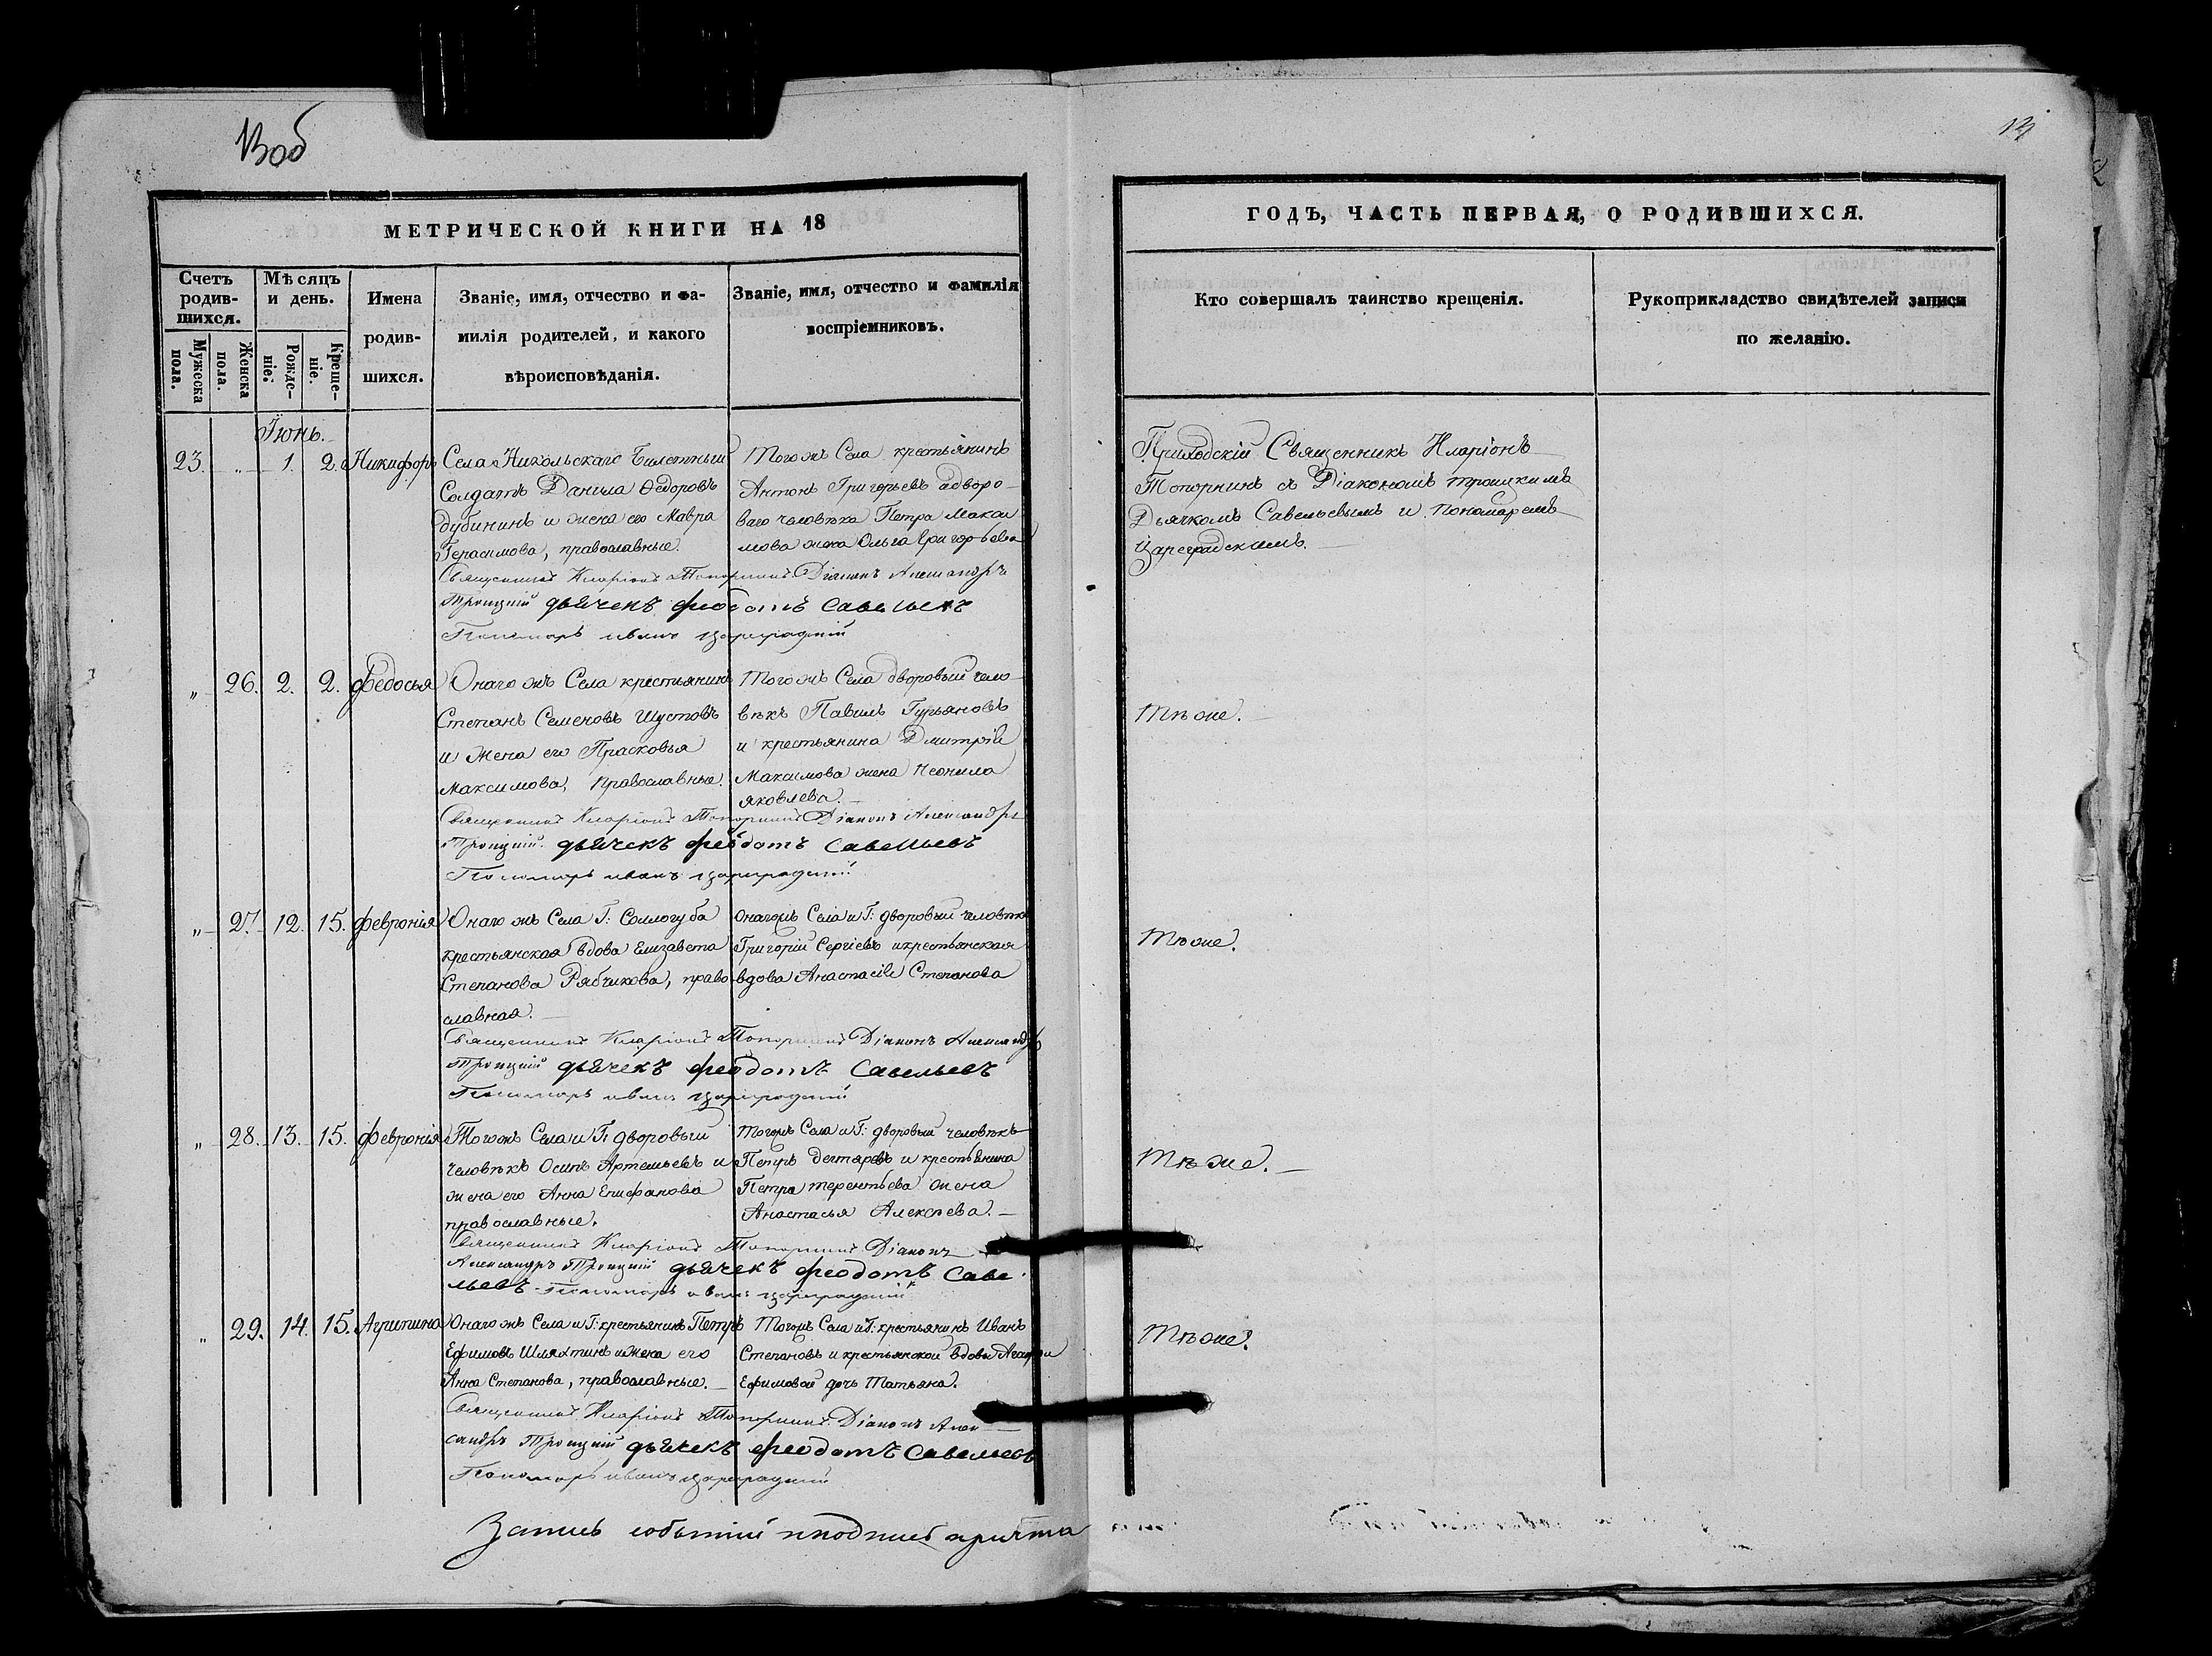 13об
14
МЕТРИЧЕСКОЙ КНИГИ НА 18
ГОДЪ, ЧАСТЬ ПЕРВАЯ, О РОДИВШИХСЯ.
Счетъ родив-шихся.
Мужеска пола.
Женска пола.
Мѣсяцъ и день.
Рожде-ніе.
Креще-ніе.
Имена родив-шихся.
Званіе, имя, отчество и фа-
милія родителей, и какого
вѣроисповѣданія.
Званіе, имя, отчество и фамилія
воспріемниковъ.
Кто совершалъ таинство крещенія.
Рукоприкладство свидѣтелей записи
по желанію.
Іюнь.
23. „ 1. 2. Никифоръ
Села Никольскаго Билетный
Солдатъ Данила Ѳедоровъ
Дубининъ и жена его Мавра
Герасимова, православные.
Тогожъ Села крестьянинъ
Антонъ Григорьевъ адворо-
ваго человѣка Петра Макси
мова жена Ольга Григорьева
Священникъ Иларіонъ Топорнинъ Діаконъ Александръ
Троицкій дьячекъ феодотъ Савельевъ
Пономарь иванъ цареградскій
Приходскій Священникъ Иларіонъ
Топорнинъ съ Діакономъ троицкимъ
Дьячкомъ Савельевымъ и пономаремъ
Цареградскимъ.
„ 26. 2. 2. Федосья
Онаго жъ Села крестьянинъ
Степанъ Семеновъ Шустовъ
и жена его Прасковья
Максимова, православные.
Тогожъ Села дворовый чело-
вѣкъ Павелъ Гурьяновъ
и крестьянина Дмитрія
Максимова жена Неонила
яковлева.
Священникъ Иларіонъ Топорнинъ Діаконъ Александръ
Троицкій. дьячекъ феодотъ Савельевъ
Пономарь иванъ цареградскій
Тѣже.
„ 27. 12. 15. Февронія
Онаго жъ Села Г: Соллогуба
крестьянская вдова Елизавета
Степанова Рябчикова, право-
славная.
онагожъ Села и Г: дворовый человѣкъ
Григорій Сергіевъ икрестьянская
вдова Анастасія Степанова
Священникъ Иларіонъ Топорнинъ Діаконъ Александръ
Троицкій дьячекъ феодотъ Савельевъ
Пономарь иванъ цареградскій
Тѣже.
„ 28. 13. 15. Февронія
Тогожъ Села и Г: дворовый
человѣкъ Осипъ Артемьевъ и
жена его Анна Епифанова
православные.
Тогожъ Села и Г: дворовый человѣкъ
Петръ Дегтяревъ и крестьянина
Петра терентьева жена
Анастасья Алексѣева.
Священникъ Иларіонъ Топорнинъ Діаконъ
Александръ Троицкій дьячекъ феодотъ Саве
льевъ Пономарь иванъ цареградскій
Тѣже.
„ 29. 14. 15. Агрипина
Онаго жъ Села и Г: крестьянинъ Петръ
Ефимовъ Шляхтинъ ижена его
Анна Степанова, православные.
Тогожъ Села и Г: крестьянинъ Иванъ
Степановъ и крестьянской вдовы
Ефимовой дочь Татьяна.
Священникъ Иларіонъ Топорнинъ Діаконъ Алек-
сандръ Троицкій дьячекъ феодотъ Савельевъ
Пономарь иванъ цареградскій
Тѣже.
Запись событій иподпись причта